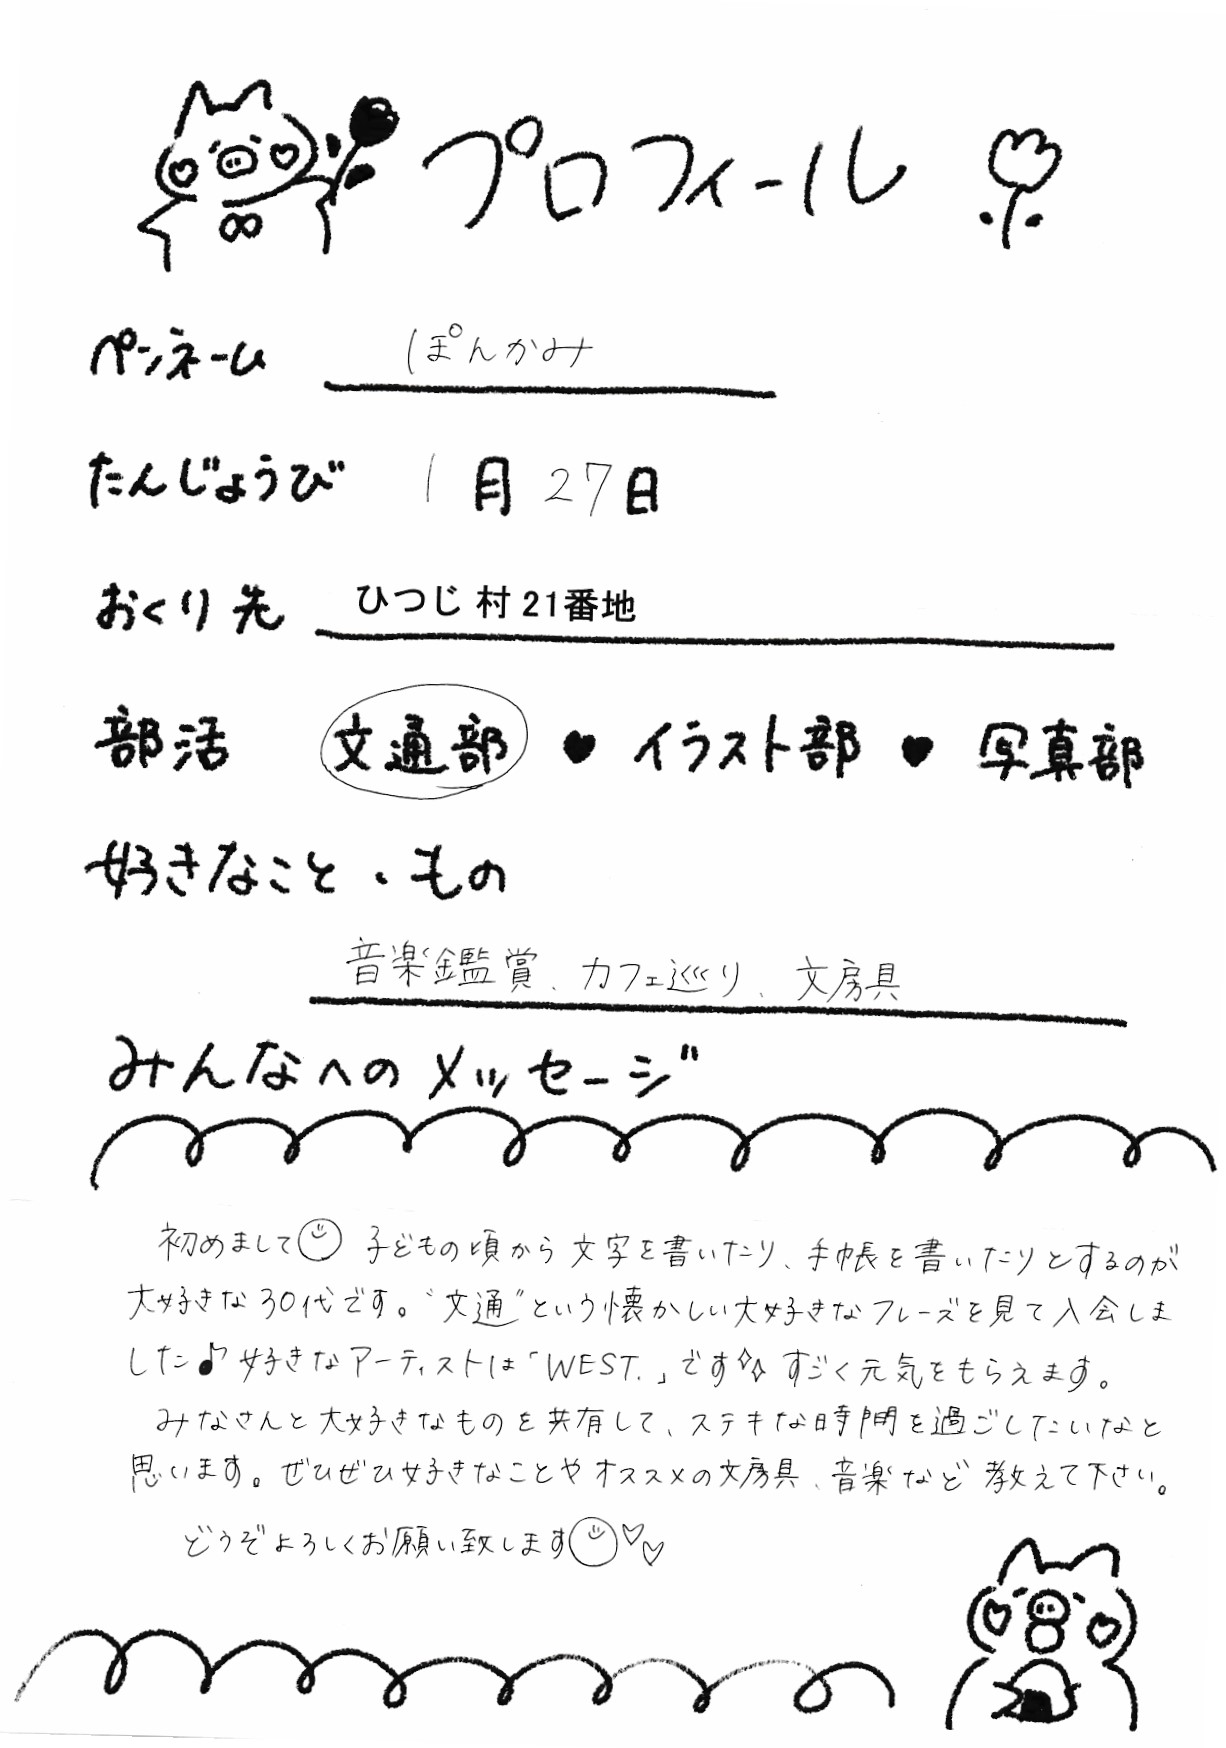 プロフィール
ペンネーム ぽんかみ
たんじょうび 1月27日
おくり先 ひつじ村21番地
部活 文通部 ♥ イラスト部 ♥ 写真部
好きなこと・もの
音楽鑑賞、カフェ巡り、文房具
みんなへのメッセージ
初めまして☺ 子どもの頃から文字を書いたり、手帳を書いたりとするのが
大好きな30代です。“文通”という懐かしい大好きなフレーズを見て入会しま
した♪ 好きなアーティストは「WEST.」です✧✧ すごく元気をもらえます。
みなさんと大好きなものを共有して、ステキな時間を過ごしたいなと
思います。ぜひぜひ好きなことやオススメの文房具、音楽など教えて下さい。
どうぞよろしくお願い致します☺♡♡